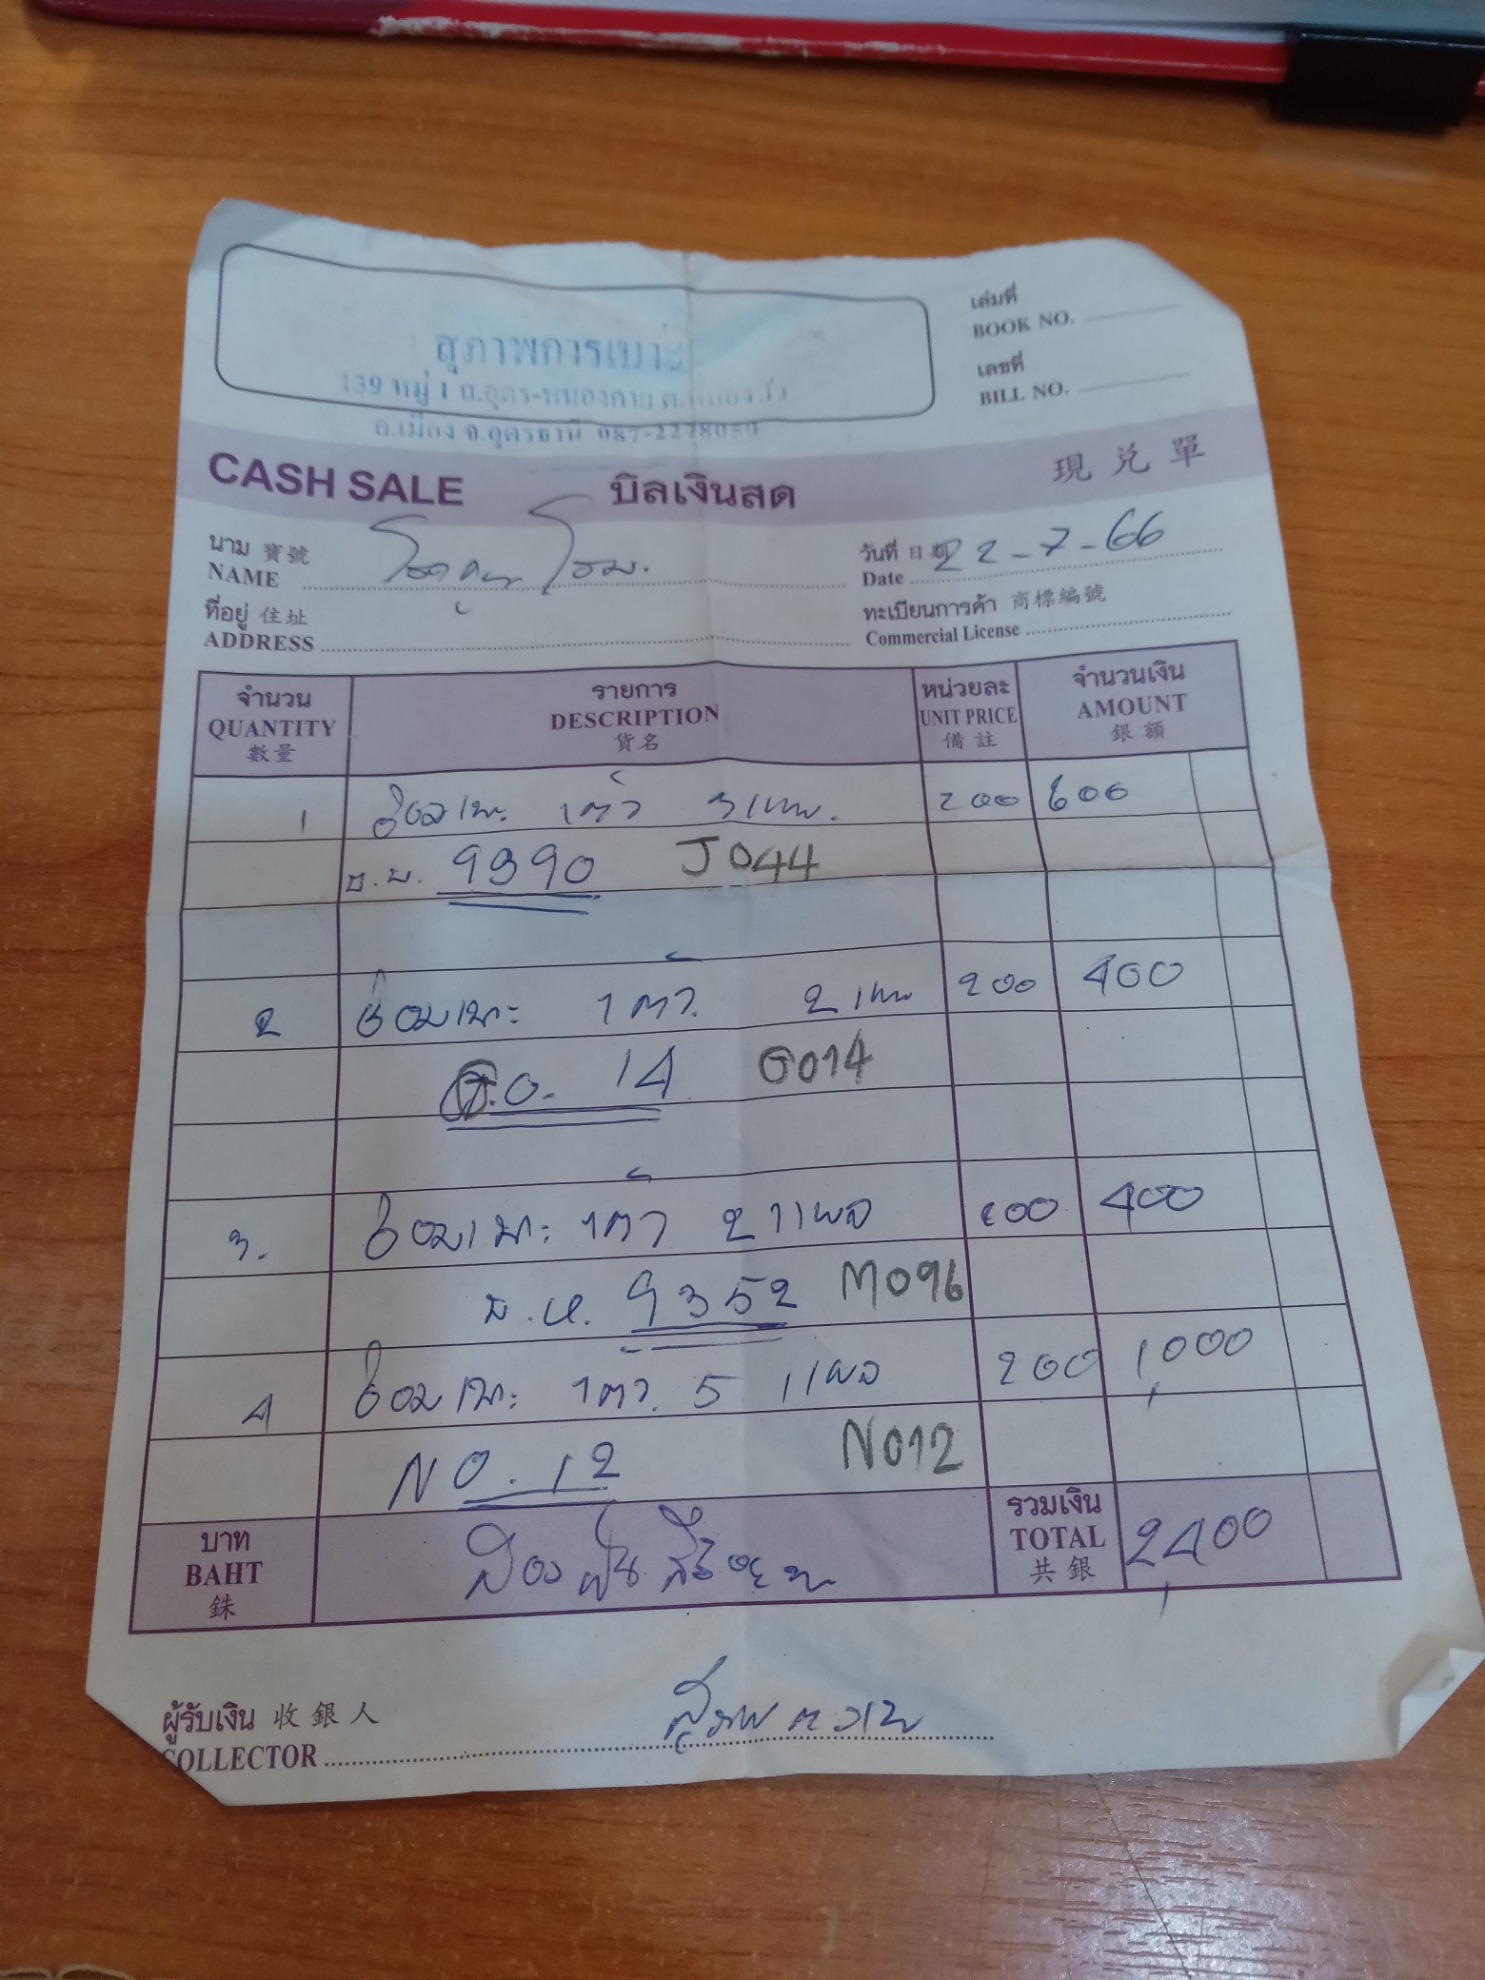 สุภาพการเบาะ
139 หมู่ 1 ถ.อุดร-หนองคาย ต.
อ.เมือง จ.อุดรธานี 087-2278050
เล่มที่
BOOK NO.
เลขที่
BILL NO.
CASH SALE บิลเงินสด 現兌單
นาม 寶號
NAME
วันที่ 日期
Date 22-7-66
ที่อยู่ 住址
ADDRESS
ทะเบียนการค้า 商標編號
Commercial License
จำนวน รายการ หน่วยละ จำนวนเงิน
QUANTITY DESCRIPTION UNIT PRICE AMOUNT
數量 貨名 備註 銀額
1 ซ่อมเบาะ 1 ตัว 3 200 600
9390 J044
2 ซ่อมเบาะ 1 ตัว 2 200 400
14 G014
3. ซ่อมเบาะ 1 ตัว 2 แผ่น 200 400
9352 M096
4 ซ่อมเบาะ 1 ตัว 5 แผ่น 200 1,000
NO.12 N012
บาท
BAHT
銖
สองพันสี่ร้อยบาท
รวมเงิน
TOTAL 2,400
共銀
ผู้รับเงิน 收銀人
COLLECTOR